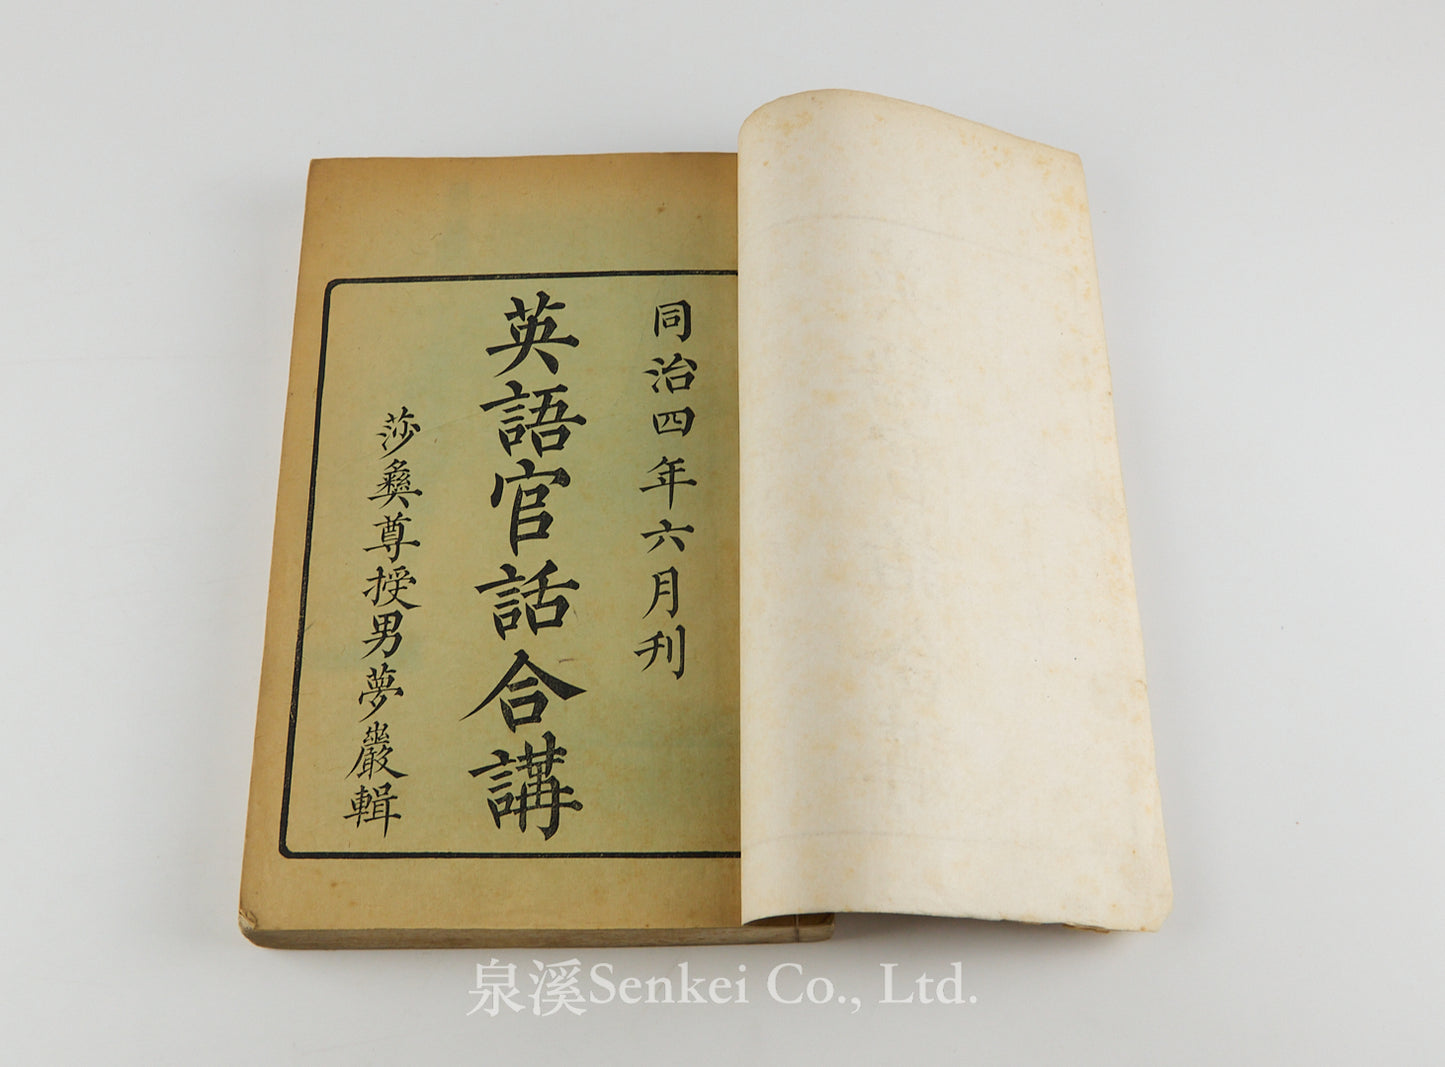 同治四年六月刊
英語官話合講
莎彝尊授男夢巖輯
泉溪Senkei Co., Ltd.